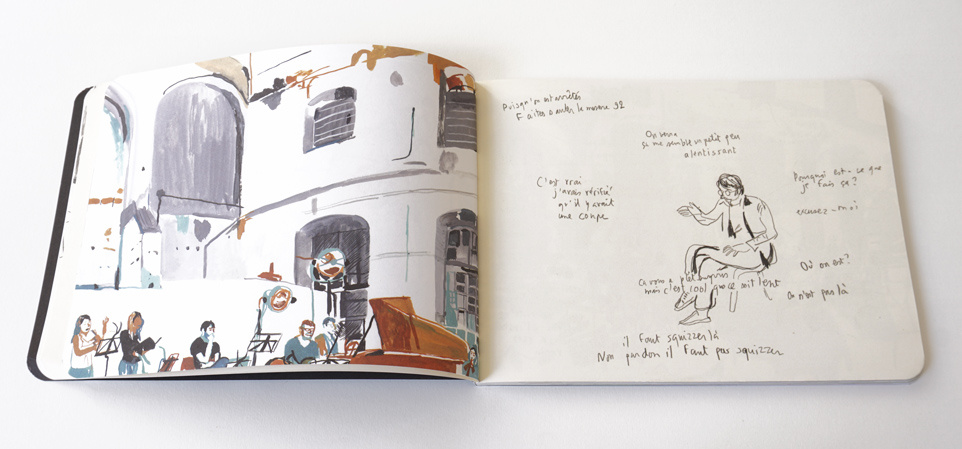 Puisqu'on est arrêtés
Faites sauter la mesure 92
On verra
si me semble un petit peu
alentissant
C'est vrai
j'avais vérifié
qu'il y avait
une coupe
Pourquoi est-ce que
je fais ça?
excusez-moi
Où on est?
On n'est pas là
Ça vous a
mais c'est cool que ce soit lent
il faut squizzer là
Non pardon il faut pas squizzer